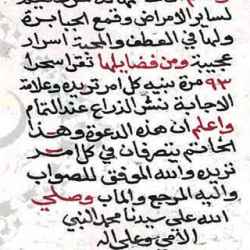 لساير الامراض وقمع الجبابرة
ولها في العطف والمحبة اسرار
عجيبة ومن فضايلها تقرا سحرا
٩٣ مرة بنية كل امر تريده وعلامة
الاجابة نشر الذراع عند التمام
واعلم أن هذه الدعوة وهذا
الخاتم يتصرفان في كل امر
تريده والله الموفق للصواب
واليه المرجع والماب وصلي
الله على سيدنا محمد النبي
الأمي وعلى اله